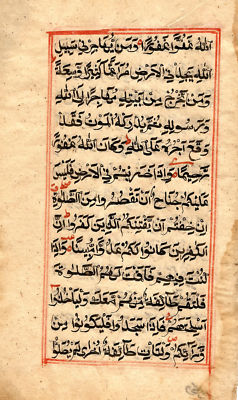 الله عفوا غفورا ومن يهاجر في سبيل
الله يجد في الارض مراغما كثيرا وسعة
ومن يخرج من بيته مهاجرا الى الله
ورسوله ثم يدركه الموت فقد
وقع اجره على الله وكان الله غفورا
رحيما واذا ضربتم في الارض فليس
عليكم جناح ان تقصروا من الصلوة
ان خفتم ان يفتنكم الذين كفروا ان
الكفرين كانوا لكم عدوا مبينا واذا
كنت فيهم فاقمت لهم الصلوة
فلتقم طائفة منهم معك ولياخذوا
اسلحتهم فاذا سجدوا فليكونوا من
ورائكم ولتات طائفة اخرى لم يصلوا